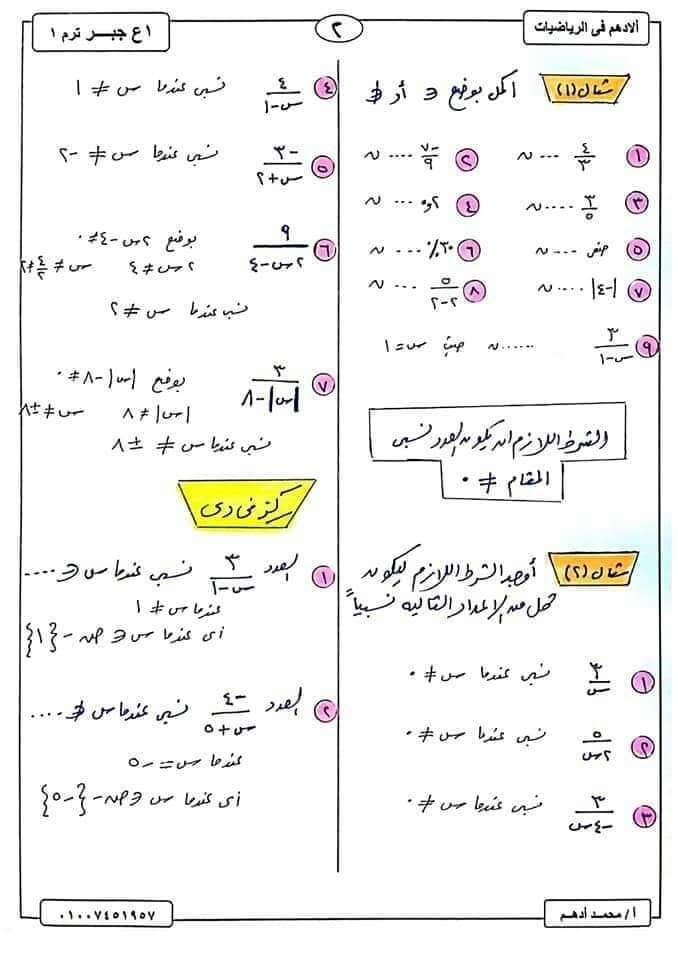 ألادهم فى الرياضيات
٢
١ع جبـــر ترم ١
مثال (١) أكمل بوضع ∈ أو ∉
١ ٤/٣ .... ن
٢ -٧/٩ .... ن
٣ ٣/٥ .... ن
٤ ٢,٥ .... ن
٥ صفر .... ن
٦ ٣٠٪ .... ن
٧ |-٤| .... ن
٨ ٥/(٢-٢) .... ن
٩ ٣/(س-١) ...... ن حيث س = ١
الشرط اللازم ان يكون العدد نسبى
المقام ≠ ٠
مثال (٢) أوجد الشرط اللازم ليكون
كل من الاعداد التاليه نسبياً
١ ٣/س نسبى عندما س ≠ ٠
٢ ٥/٢س نسبى عندما س ≠ ٠
٣ ٣/-٤س نسبى عندما س ≠ ٠
٤ ٤/(س-١) نسبى عندما س ≠ ١
٥ -٣/(س+٢) نسبى عندما س ≠ -٢
٦ ٩/(٢س-٤) بوضع ٢س-٤ ≠ ٠
٢س ≠ ٤ س ≠ ٤/٢ ≠ ٢
نسبى عندما س ≠ ٢
٧ ٣/(|س|-٨) بوضع |س|-٨ ≠ ٠
|س| ≠ ٨ س ≠ ±٨
نسبى عندما س ≠ ±٨
ركز فى دى
١ العدد ٣/(س-١) نسبى عندما س ∈ ....
عندما س ≠ ١
أى عندما س ∈ ص - {١}
٢ العدد -٤/(س+٥) نسبى عندما س ∉ ....
عندما س = -٥
أى عندما س ∈ ص - {-٥}
أ / محمـد أدهـم
٠١٠٠٧٤٥١٩٥٧